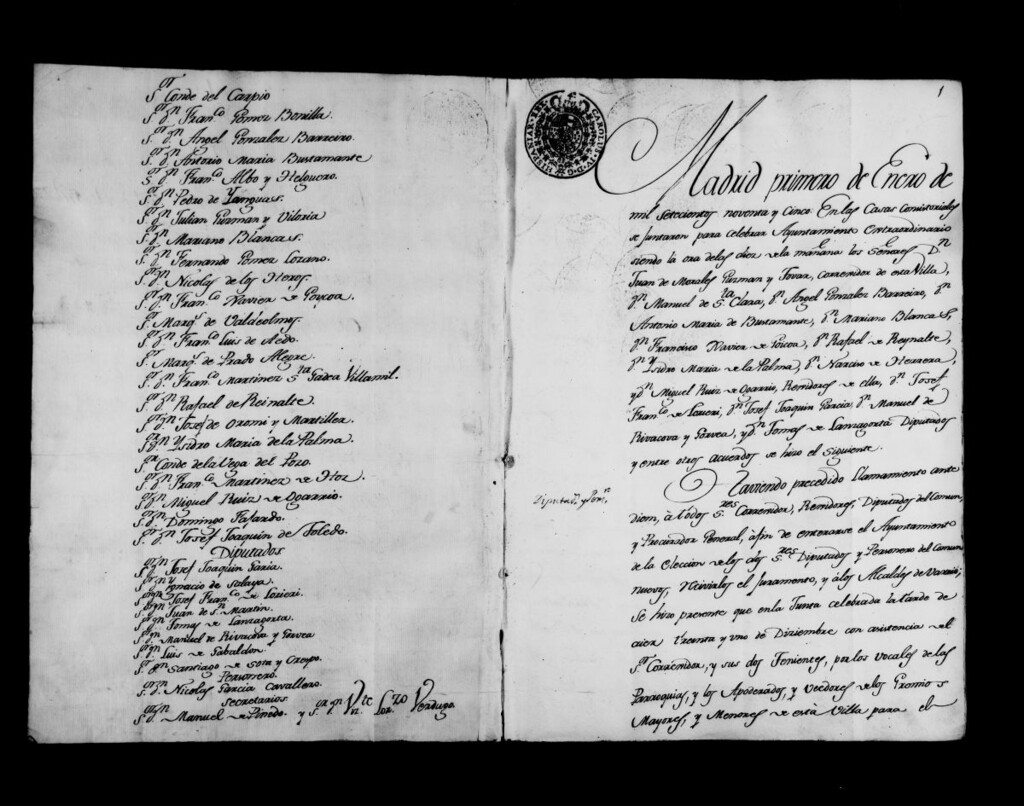 S.or Conde del Carpio
S.or D.n Fran.co Gomez Bonilla.
S.or D.n Angel Gonzalez Barreiro.
S.or D.n Antonio Maria Bustamante
S.or D.n Fran.co Albo y Helguero.
S.or D.n Pedro de Yanguas.
S.or D.n Julian Guzman y Viloria
S.or D.n Mariano Blancas.
S.or D.n Fernando Gomez Lozano.
S.or D.n Nicolas de los Heros.
S.or D.n Fran.co Xavier de Goycoa.
S.or Marq.s de Valdeolmos.
S.or D.n Fran.co Luis de Aedo.
S.or Marq.s de Prado Alegre.
S.or D.n Fran.co Martinez S.ta Gadea Villamil.
S.or D.n Rafael de Reinalte.
S.or D.n Josef de Oromi y Martiller.
S.or D.n Ysidro Maria de la Palma.
S.or Conde de la Vega del Pozo.
S.or D.n Fran.co Martinez de Hoz.
S.or D.n Miguel Ruiz de Ogarrio.
S.or D.n Domingo Fajardo.
S.or D.n Josef Joaquin de Toledo.
Diputados
S.or D.n Josef Joaquin Garia.
S.or D.n Ygnacio de Salaya.
S.or D.n Josef Fran.co de
S.or D.n Juan de S.n Martin.
S.or D.n Tomas de Lanzagorta.
S.or D.n Manuel de Rivacova y Gorvea
S.or D.n Luis de Gabaldon.
S.or D.n Santiago de Sota y Crespo.
Personero.
S.or D.n Nicolas Garcia Cavallero.
Secretarios
S.or D.n Manuel de Pinedo. y S.or D.n V.te Lor.zo Verdugo.
1
Madrid primero de Enero de
mil setecientos noventa y cinco. En las Casas Consistoriales
se juntaron para celebrar Ayuntamiento Extraordinario
siendo la ora de las diez de la mañana los Señores D.n
Juan de Morales Guzman y Tovar, corregidor de esta Villa,
D.n Manuel de S.ta Clara, D.n Angel Gonzalez Barreiro, D.n
Antonio Maria de Bustamante, D.n Mariano Blancas,
D.n Francisco Xavier de Goicoa, D.n Rafael de Reynalte,
D.n Ysidro Maria de la Palma, D.n Narciso de Herrera,
y D.n Miguel Ruiz de Ogarrio, Regidores de ella, D.n Josef
Fran.co de D.n Josef Joaquin Garcia, D.n Manuel de
Rivacova y Gorvea, y D.n Tomas de Lanzagorta Diputados
y entre otros acuerdos se hizo el siguiente.
Haviendo precedido llamamiento ante
Diputad.s y Pers.o
diem, à todos S.res Corregidor, Regidores, Diputados del Comun,
y Procurador General, afin de enterarse el Ayuntamiento
de la eleccion de los dos S.res Diputados y Personero del Comun
nuevos, recivirlos el juramento, y à los Alcaldes de Varrio;
se hizo presente que en la Junta celebrada la tarde de
aier treinta y uno de Diziembre con asistencia del
S.or Corregidor, y sus dos Tenientes, por los vocales de las
Parroquias, y los Apoderados, y veedores de los Gremios
Mayores, y Menores de esta Villa para el